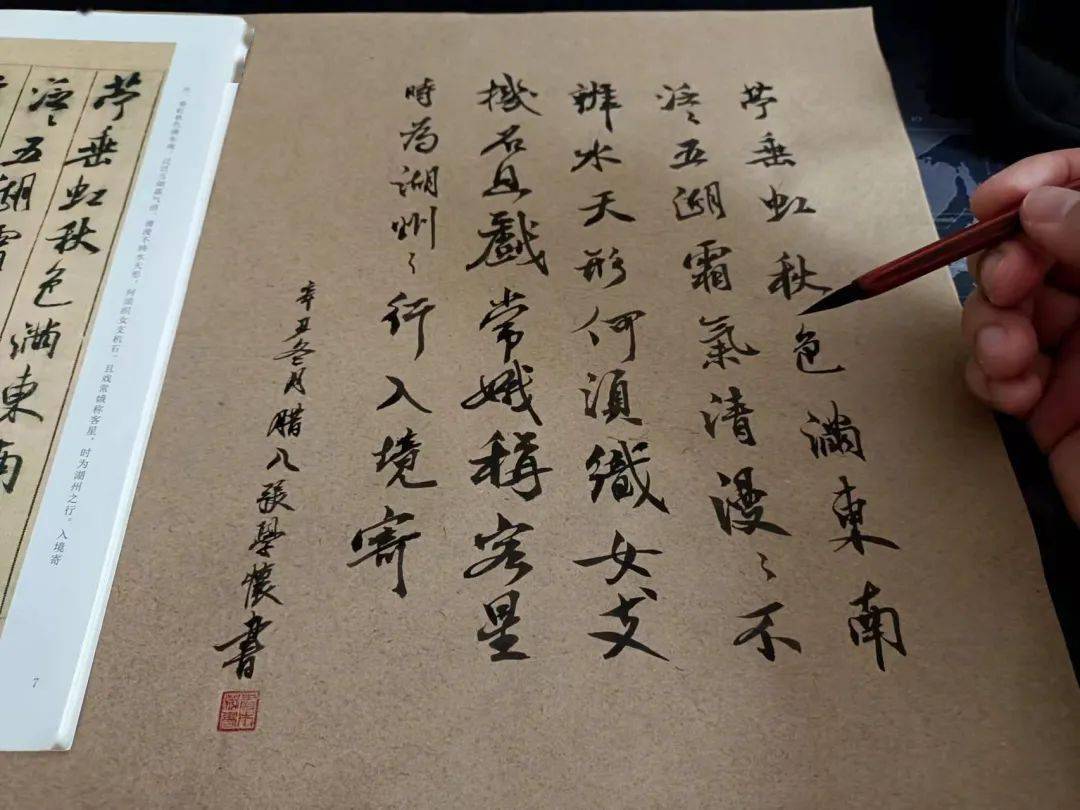 苧垂虹秋色滿東南
泛〻五湖霜氣清漫〻不
辨水天形何須織女支
機石且戲常娥稱客星
時為湖州之行入境寄
辛丑冬月腊八張學懷書
垂虹秋色满东南；泛泛五湖霜气清，漫漫不辨水天形。何须织女支机石，且戏常娥称客星。时为湖州之行。入境寄
7
苧垂虹秋色滿東南
泛〻五湖霜